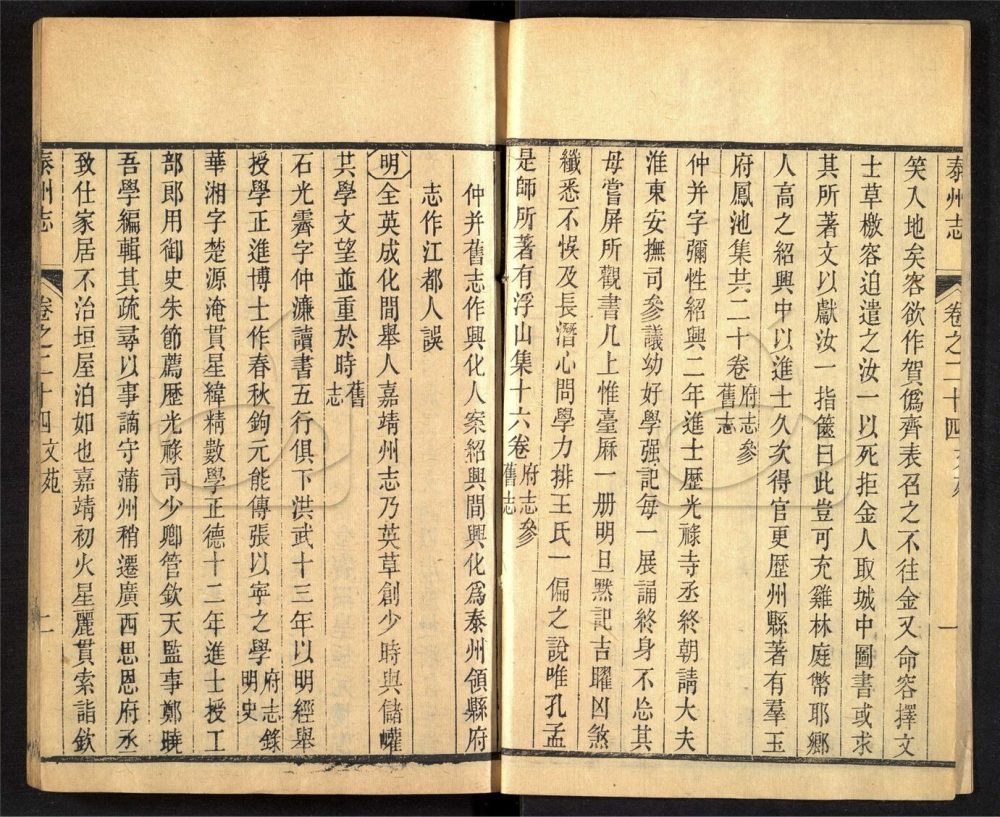 泰州志 卷之二十四 一
笑入地矣容欲作賀僞齊表召之不往金又命容擇文
士草檄容迫遣之汝一以死拒金人取城中圖書或求
其所著文以獻汝一指篋曰此豈可充雞林庭幣耶鄉
人高之紹興中以進士久次得官更歷州縣著有羣玉
府鳳池集共二十卷府志參舊志
仲并字彌性紹興二年進士歷光祿寺丞終朝請大夫
淮東安撫司參議幼好學强記每一展誦終身不忘其
母嘗屏所觀書几上惟臺厤一册明旦默記吉曜凶煞
纖悉不悞及長潛心問學力排王氏一偏之說唯孔孟
是師所著有浮山集十六卷府志參舊志
仲并舊志作興化人案紹興間興化爲泰州領縣府
志作江都人誤
明全英成化間舉人嘉靖州志乃英草創少時與儲巏
共學文望並重於時舊志
石光霽字仲濂讀書五行俱下洪武十三年以明經舉
授學正進博士作春秋鉤元能傳張以寧之學府志錄明史
華湘字楚源淹貫星緯精數學正德十二年進士授工
部郎用御史朱節薦歷光祿司少卿管欽天監事鄭曉
吾學編輯其疏尋以事謫守蒲州稍遷廣西思恩府丞
致仕家居不治垣屋泊如也嘉靖初火星麗貫索詣欽
泰州志 卷之二十四 文苑 二